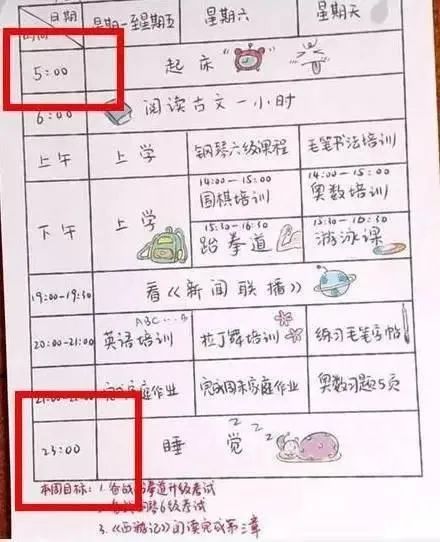 日期
时间
星期一至星期五 星期六 星期天
5:00 起床
6:00 阅读古文一小时
上午 上学 钢琴六级课程 毛笔书法培训
下午 上学
14:00-15:00 围棋培训
14:00-15:00 奥数培训
15:30-16:30 跆拳道
15:30-16:30 游泳课
19:00-19:30 看《新闻联播》
ABC...
20:00-21:00 英语培训 拉丁舞培训 练习毛笔字帖
家庭作业 完成周末家庭作业 奥数习题5页
23:00 睡觉
zzz
本周目标: 1. 备战跆拳道升级考试
6级考试
3.《西游记》阅读完成第三章